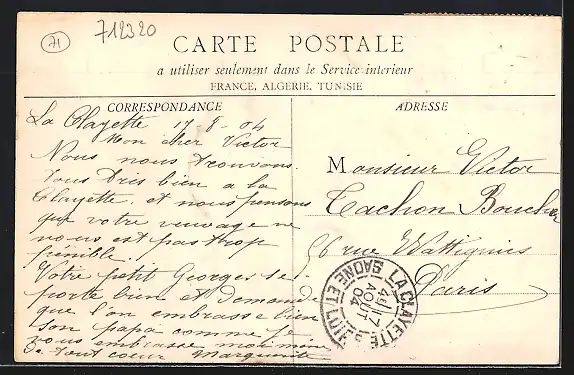 71
712320
CARTE POSTALE
a utiliser seulement dans le Service interieur
FRANCE, ALGERIE, TUNISIE
CORRESPONDANCE
La Clayette 17-8-04
Mon cher Victor
Nous nous trouvons
tous très bien a la
Clayette. et nous pensons
que votre veuvage ne
vous est pas trop
penible.
Votre petit Georges se
porte bien et demande
que l'on embrasse bien
son papa comme je
vous embrasse moi même
de tout coeur Marguerite
ADRESSE
Monsieur Victor
Cachon Boucher
56 rue Wattignies
Paris
LA CLAYETTE
17
AOUT
04
SAONE ET LOIRE